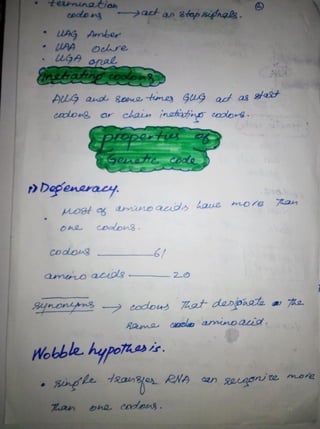 termination
codons → act as stop signals.
• UAG Amber
• UAA Ochre
• UGA opal
inetiating codons
AUG and some times GUG act as start
codons or chain inetiating codons.
properties of
Genetic code
1) Degeneracy.
• Most of amino acids have more than
one codons.
codons ——— 61
amino acids ——— 20
synonyms → codons that designate the
same aminoacid.
Wobble hypothesis.
• single transfer RNA can recognize more
than one codons.